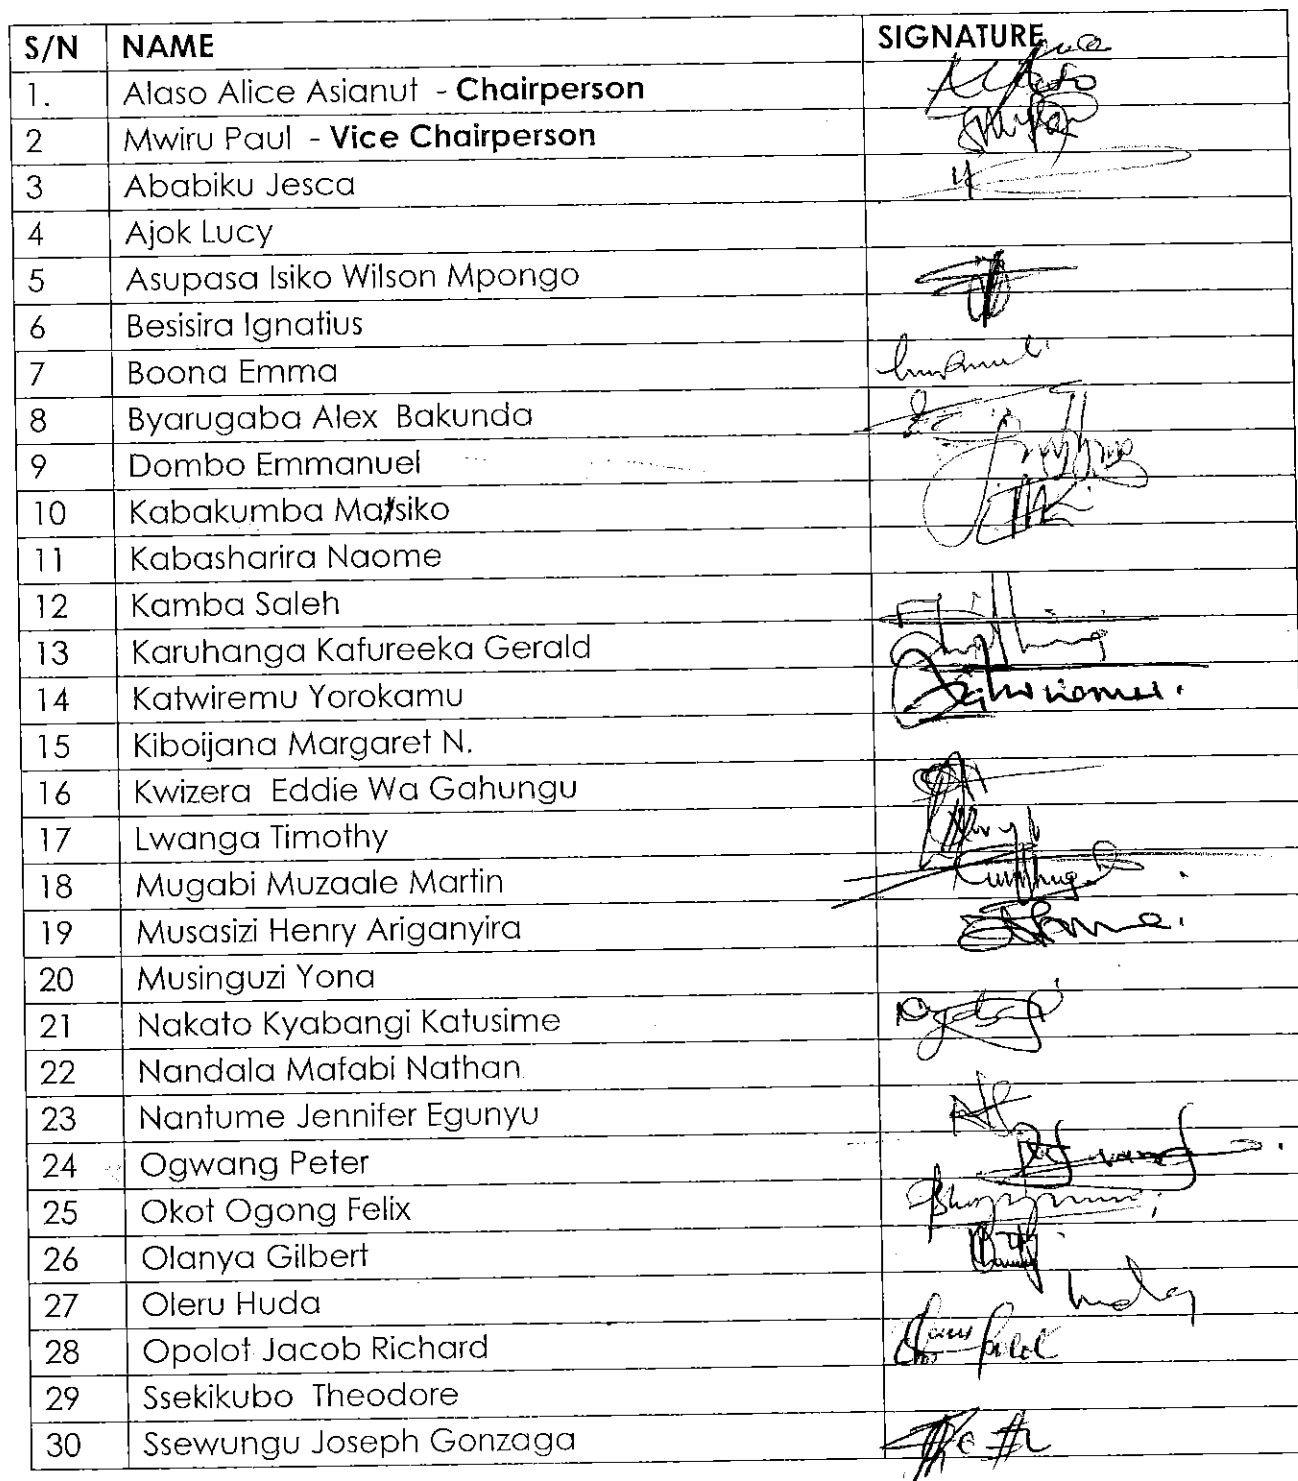 S/N NAME SIGNATURE
1. Alaso Alice Asianut - Chairperson
2 Mwiru Paul - Vice Chairperson
3 Ababiku Jesca
4 Ajok Lucy
5 Asupasa Isiko Wilson Mpongo
6 Besisira Ignatius
7 Boona Emma
8 Byarugaba Alex Bakunda
9 Dombo Emmanuel
10 Kabakumba Matsiko
11 Kabasharira Naome
12 Kamba Saleh
13 Karuhanga Kafureeka Gerald
14 Katwiremu Yorokamu
15 Kiboijana Margaret N.
16 Kwizera Eddie Wa Gahungu
17 Lwanga Timothy
18 Mugabi Muzaale Martin
19 Musasizi Henry Ariganyira
20 Musinguzi Yona
21 Nakato Kyabangi Katusime
22 Nandala Mafabi Nathan
23 Nantume Jennifer Egunyu
24 Ogwang Peter
25 Okot Ogong Felix
26 Olanya Gilbert
27 Oleru Huda
28 Opolot Jacob Richard
29 Ssekikubo Theodore
30 Ssewungu Joseph Gonzaga